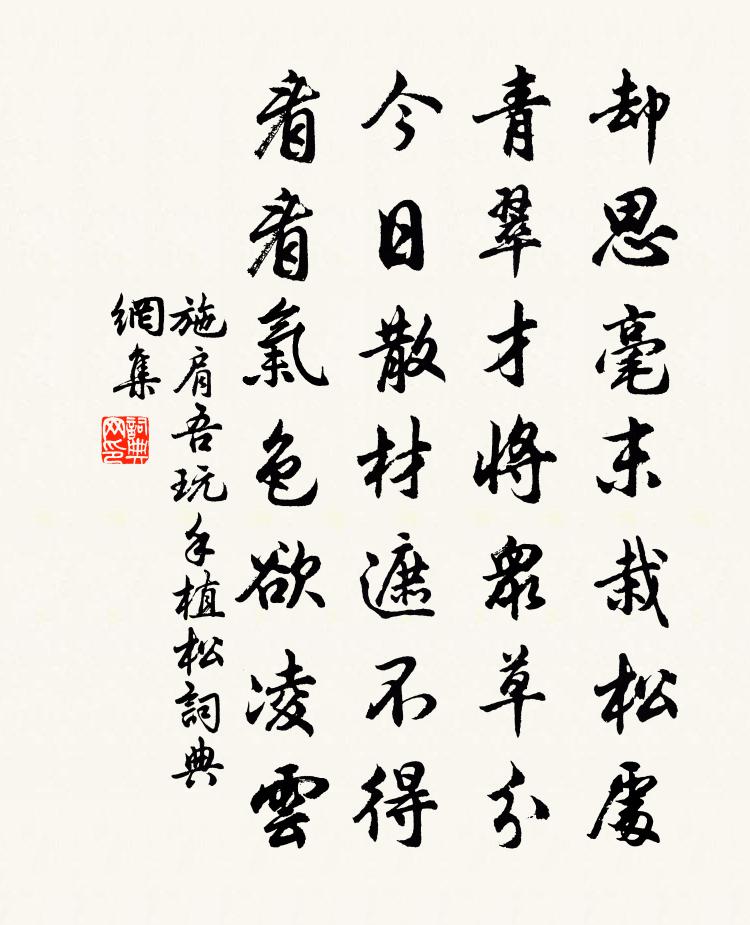 却思毫末栽松處
青翠才將衆草分
今日散材遮不得
看看氣色欲凌雲
施肩吾玩手植松詞典
網集
詞典網印